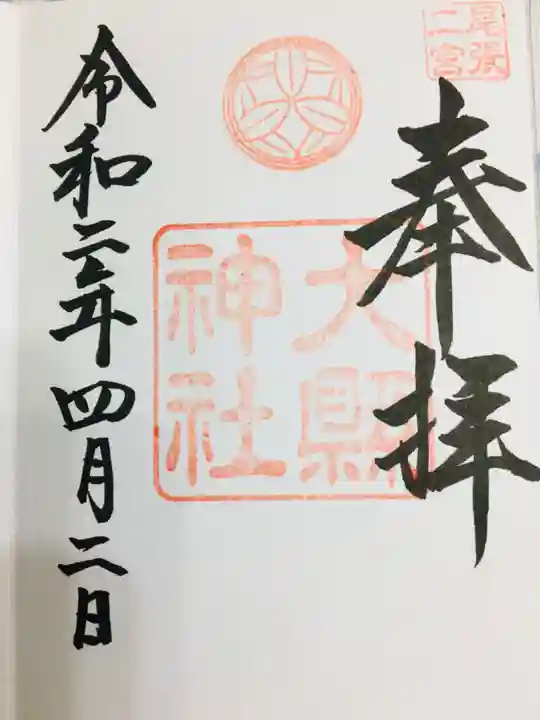 尾張
二宮
奉拝
大縣
神社
令和二年四月二日